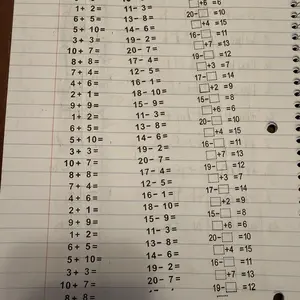 1+ 2= 11− 3= □+6 =6
6+ 5= 13− 8= 20−□ =10
5+ 10= 14− 6= □+4 =15
3+ 3= 19− 2= 16−□ =11
10+ 7= 20− 7= □+7 =13
8+ 8= 17− 4= 19−□ =12
7+ 4= 12− 5= □+3 =7
4+ 6= 16− 1= 17−□ =14
2+ 1= 18− 10= □+2 =9
9+ 9= 15− 9= 15−□ =8
1+ 2= 11− 3= □+6 =6
6+ 5= 13− 8= 20−□ =10
5+ 10= 14− 6= □+4 =15
3+ 3= 19− 2= 16−□ =11
10+ 7= 20− 7= □+7 =13
8+ 8= 17− 4= 19−□ =12
7+ 4= 12− 5= □+3 =7
4+ 6= 16− 1= 17−□ =14
2+ 1= 18− 10= □+2 =9
9+ 9= 15− 9= 15−□ =8
1+ 2= 11− 3= □+6 =6
6+ 5= 13− 8= 20−□ =10
5+ 10= 14− 6= □+4 =15
3+ 3= 19− 2= 16−□ =11
10+ 7= 20− 7= □+7 =13
8+ 8= 19−□ =12